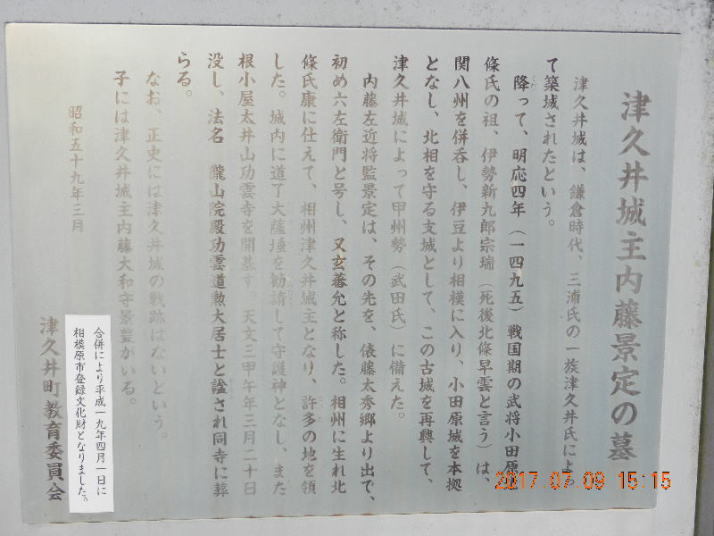 津久井城主内藤景定の墓
津久井城は、鎌倉時代、三浦氏の一族津久井氏によ
て築城されたという。
降って、明応四年（一四九五）戦国期の武将小田原
條氏の祖、伊勢新九郎宗瑞（死後北條早雲と言う）は、
関八州を併呑し、伊豆より相模に入り、小田原城を本拠
となし、北相を守る支城として、この古城を再興して、
津久井城によって甲州勢（武田氏）に備えた。
内藤左近将監景定は、その先を、俵藤太秀郷より出で、
初め六左衛門と号し、又玄蕃允と称した。相州に生れ北
條氏康に仕えて、相州津久井城主となり、許多の地を領
した。城内に道了大薩埵を勧請して守護神となし、また
根小屋太井山功雲寺を開基す。天文三甲午年三月二十日
没し、法名 隴山院殿功雲道勲大居士と諡され同寺に葬
らる。
なお、正史には津久井城の戦跡はないという。
子には津久井城主内藤大和守景豊がいる。
昭和五十九年三月
津久井町教育委員会
合併により平成一九年四月一日に
相模原市登録文化財となりました。
2017.07.09 15:15